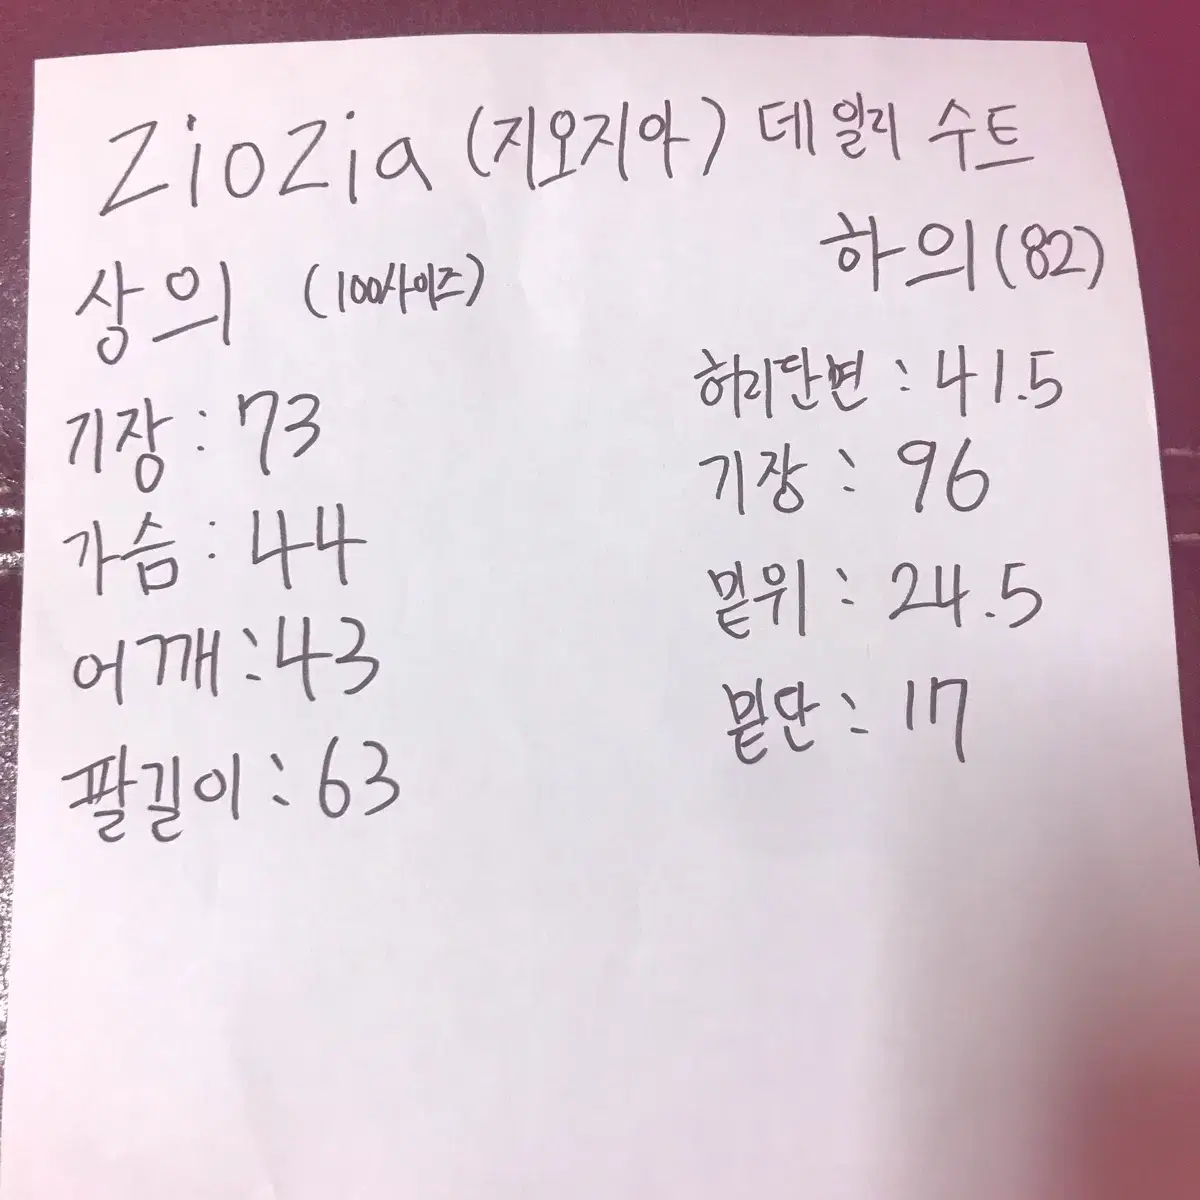 ZioZia (지오지아) 데일리 수트
상의 (100사이즈)
기장 : 73
가슴 : 44
어깨 : 43
팔길이 : 63
하의 (82)
허리단면 : 41.5
기장 : 96
밑위 : 24.5
밑단 : 17